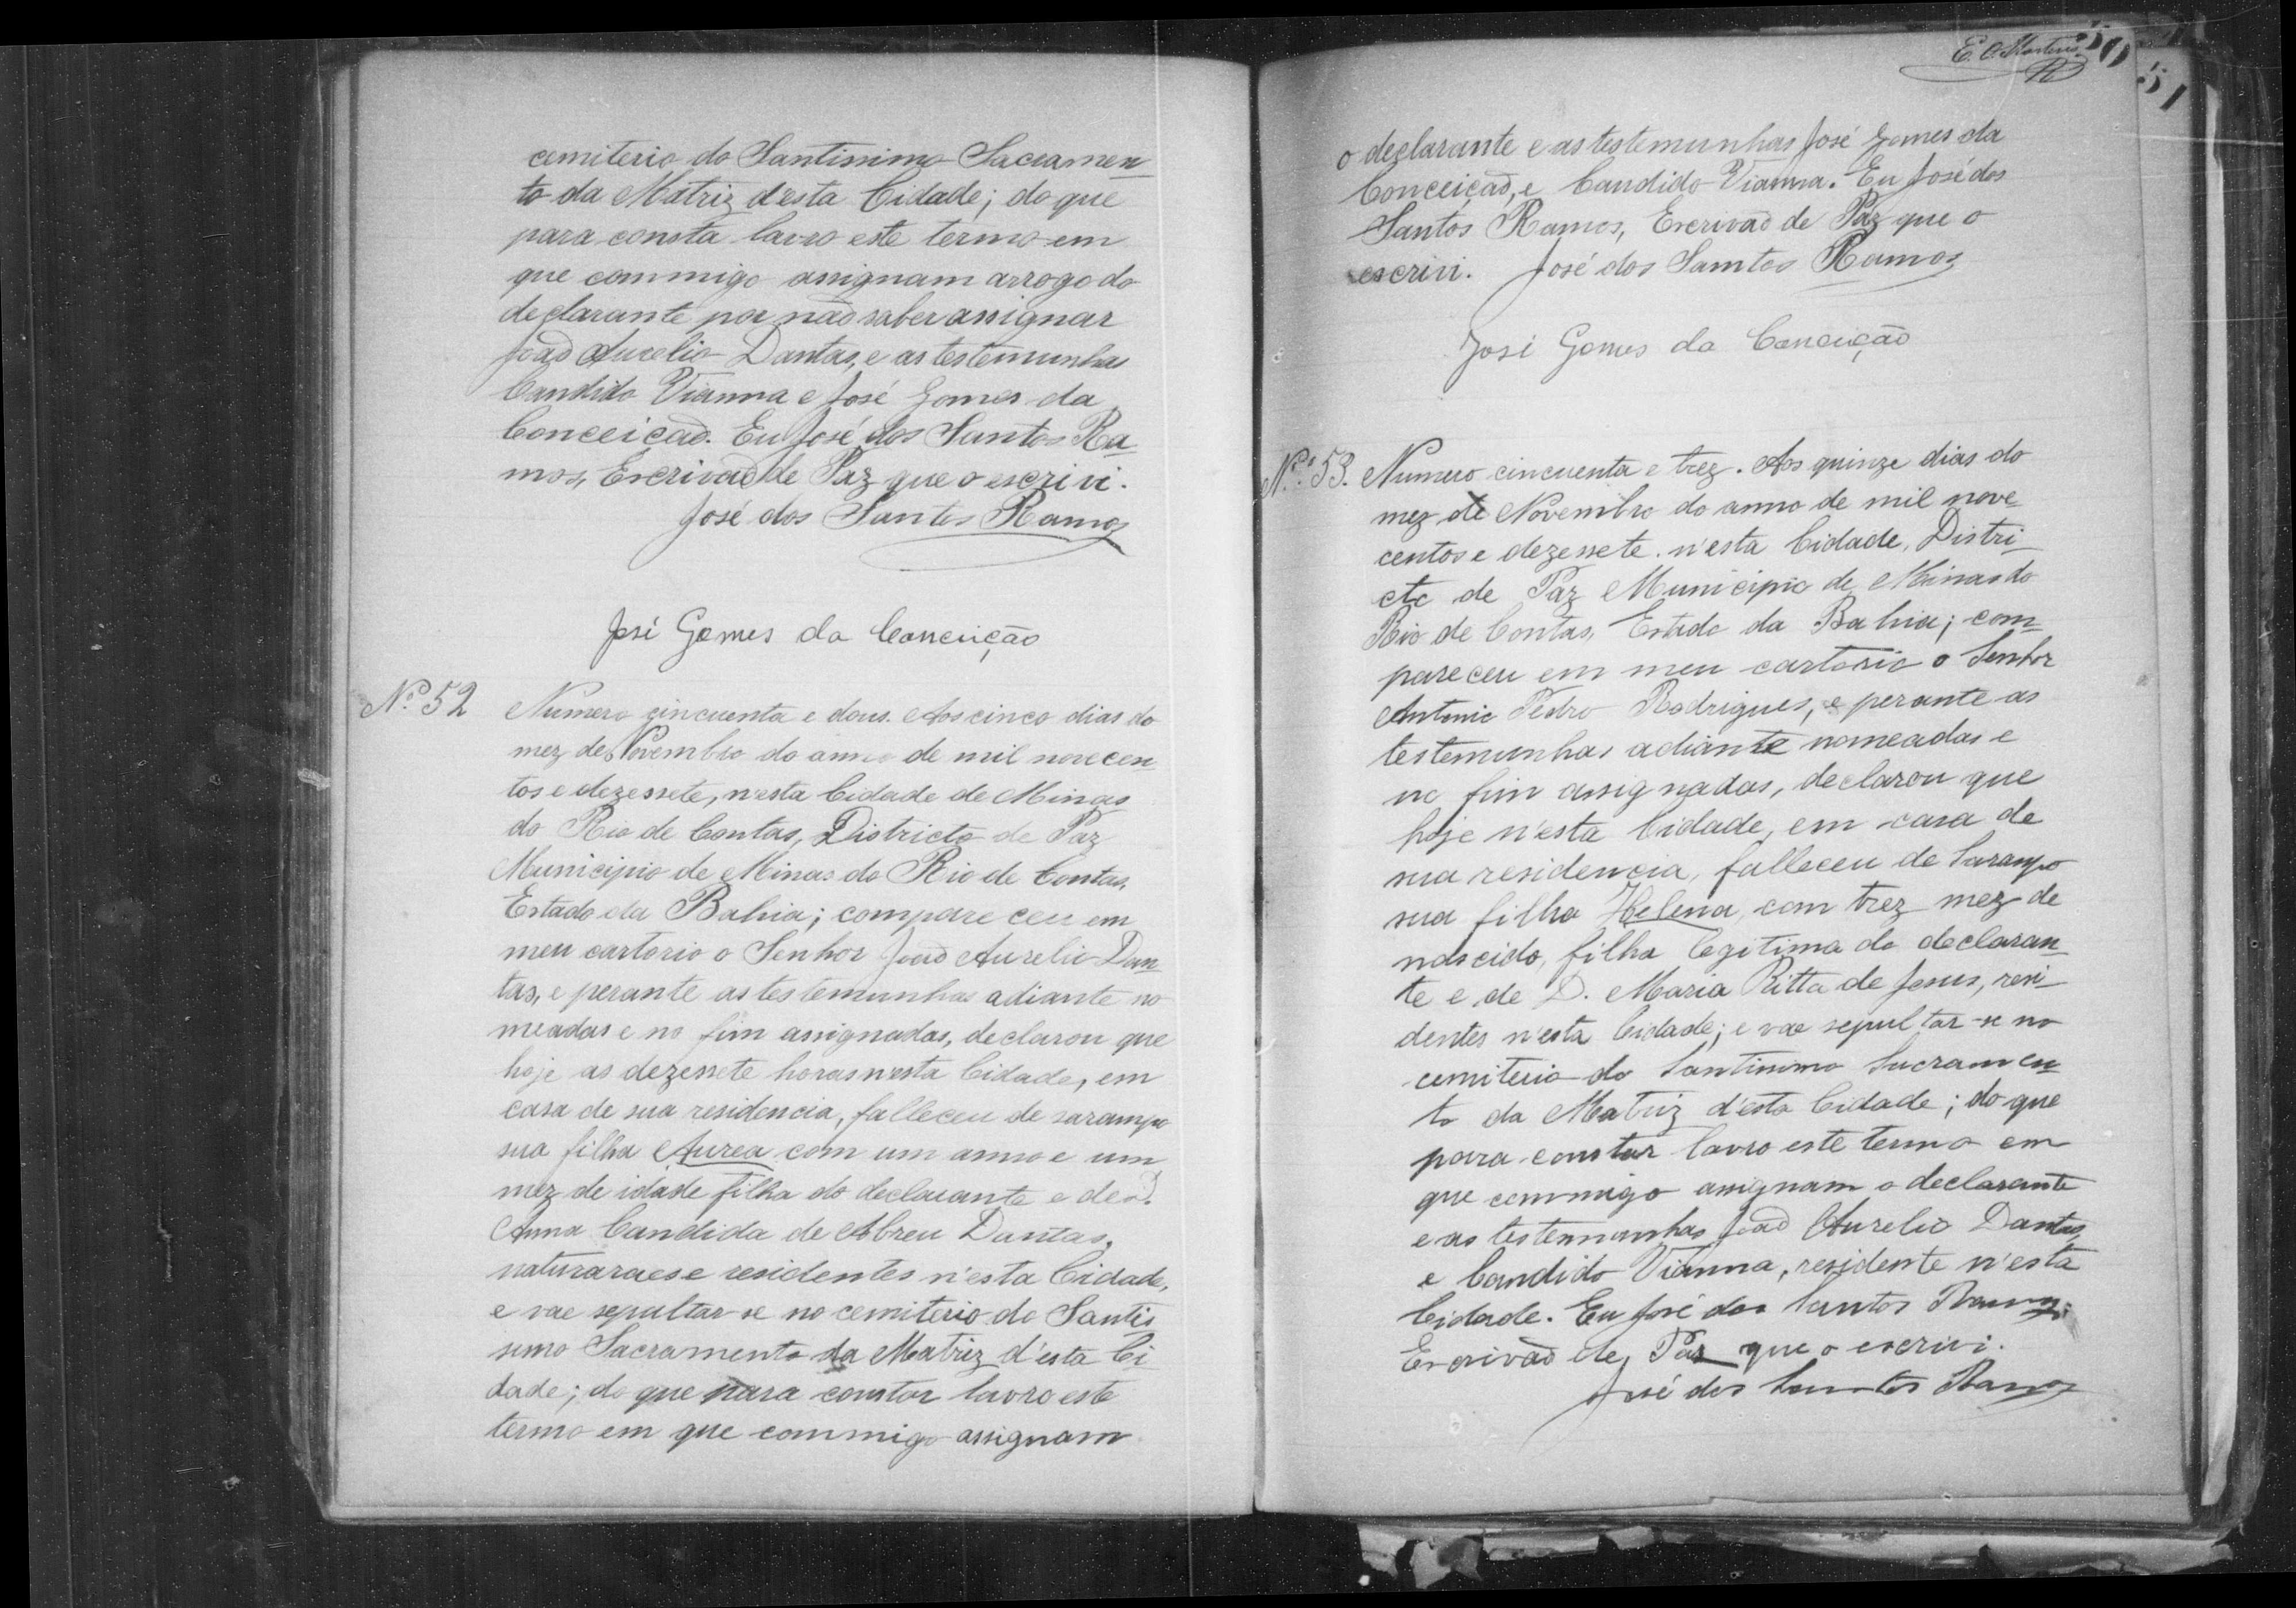 cemiterio do Santissimo Sacramen
to da Matriz d'esta Cidade; do que
para consta lavro este termo em
que commigo assignam arrogo do
declarante por não saber assignar
João Aurelio Dantas, e as testemunhas
Candido Vianna e José Gomes da
Conceição. Eu José dos Santos Ra
mos, Escrivão de Paz que o escrivi.
José dos Santos Ramos
José Gomes da Conceição
Nº 52 Numero cincuenta e dous. Aos cinco dias do
mez de Novembro do anno de mil novecen
tos e dezessete, n'esta Cidade de Minas
do Rio de Contas, Districto de Paz
Municipio de Minas do Rio de Contas,
Estado da Bahia; compareceu em
meu cartorio o Senhor João Aurelio Dan
tas, e perante as testemunhas adiante no
meadas e no fim assignadas, declarou que
hoje as dezessete horas n'esta Cidade, em
casa de sua residencia, falleceu de sarampo
sua filha Aurea com um anno e um
mez de idade filha do declarante e de D.
Anna Candida de Abreu Dantas,
naturaraes e residentes n'esta Cidade,
e vae sepultar-se no cemiterio do Santis
simo Sacramento da Matriz d'esta Ci
dade; do que para constar lavro este
termo em que commigo assignam
E. O. Martins
50
51
o declarante e as testemunhas José Gomes da
Conceição, e Candido Vianna. Eu José dos
Santos Ramos, Escrivão de Paz que o
escrivi. José dos Santos Ramos
José Gomes da Conceição
Nº 53. Numero cincuenta e trez. Aos quinze dias do
mez de Novembro do anno de mil nove
centos e dezessete. n'esta Cidade, Distri
cto de Paz Municipio de Minas do
Rio de Contas, Estado da Bahia; com
pareceu em meu cartorio o Senhor
Antonio Pedro Rodrigues, e perante as
testemunhas adiante nomeadas e
no fim assignadas, declarou que
hoje n'esta Cidade, em casa de
sua residencia, falleceu de Sarampo
sua filha Helena, com trez mez de
nascido, filha legitima do declaran
te e de D. Maria Ritta de Jesus, resi
dentes n'esta Cidade; e vae sepultar-se no
cemiterio do Santissimo Sacramen
to da Matriz d'esta Cidade; do que
para constar lavro este termo em
que commigo assignam o declarante
e as testemunhas João Aurelio Dantas,
e Candido Vianna, residente n'esta
Cidade. Eu José dos Santos Ramos,
Escrivão de Paz que o escrivi.
José dos Santos Ramos